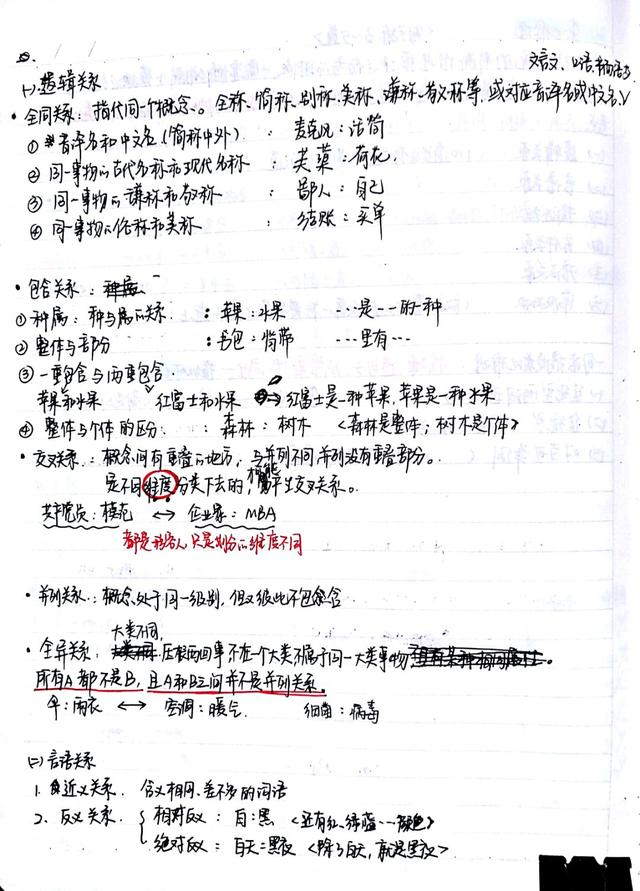 文言文、口语书面语等
㈠逻辑关系
• 全同关系：指代同一个概念。全称、简称、别称、美称、谦称、敬义称等，或对应音译名或中文名
① 音译名和中文名（简称中外）： 麦克风：话筒
② 同一事物的古代名称和现代名称 ： 芙蕖：荷花
③ 同一事物的谦称和敬称 ： 鄙人：自己
④ 同一事物的俗称和美称 ： 结账：买单
• 包含关系：种属
① 种属：种与属的关系 ：苹果：水果 …是…的一种
② 整体与部分 ：书包：背带 …里有…
③ 一重包含与两重包含
苹果和水果 红富士和水果 红富士是一种苹果，苹果是一种水果
④ 整体与个体的区分： 森林：树木 〈森林是整体；树木是个体〉
• 交叉关系：概念间有重叠的地方，与并列不同并列没有重叠部分。
是不同维度分类下去的，才能产生交叉关系。
共产党员：模范 ↔ 企业家：MBA
都是 只是划分的维度不同
• 并列关系：概念处于同一级别，但又彼此不包含
大类不同，
• 全异关系： 压根两回事不在一个大类不属于同一大类事物
所有A都不是B，且A和B之间并不是并列关系。
伞：雨衣 ↔ 空调：暖气 细菌：病毒
㈡ 言语关系
1. 近义关系. 含义相同、差不多的词语
2. 反义关系. 相对反义：白：黑 〈还有红、绿蓝…颜色〉
绝对反义：白天：黑夜 〈除了白天，就是黑夜〉